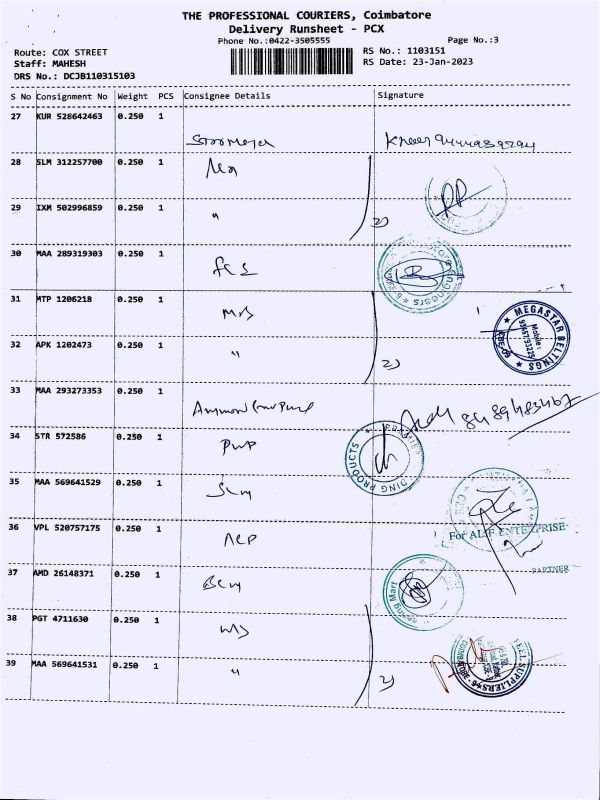 THE PROFESSIONAL COURIERS, Coimbatore
Delivery Runsheet - PCX
Phone No.:0422-3505555
Page No.:3
Route: COX STREET
RS No.: 1103151
Staff: MAHESH
RS Date: 23-Jan-2023
DRS No.: DCJB110315103
S No Consignment No Weight PCS Consignee Details Signature
27 KUR 528642463 0.250 1
28 SLM 312257700 0.250 1
29 IXM 502996859 0.250 1
"
2)
30 MAA 289319303 0.250 1
31 MTP 1206218 0.250 1
MEGASTAR BELTINGS
Mobile :
32 APK 1202473 0.250 1
"
2)
33 MAA 293273353 0.250 1
34 STR 572586 0.250 1
PWP
PRODUCTS
35 MAA 569641529 0.250 1
Slm
36 VPL 520757175 0.250 1
For ALIF ENTERPRISE
ACP
PARTNER
37 AMD 26148371 0.250 1
Mart
38 PGT 4711630 0.250 1
39 MAA 569641531 0.250 1
"
2)
SUPPLIERS